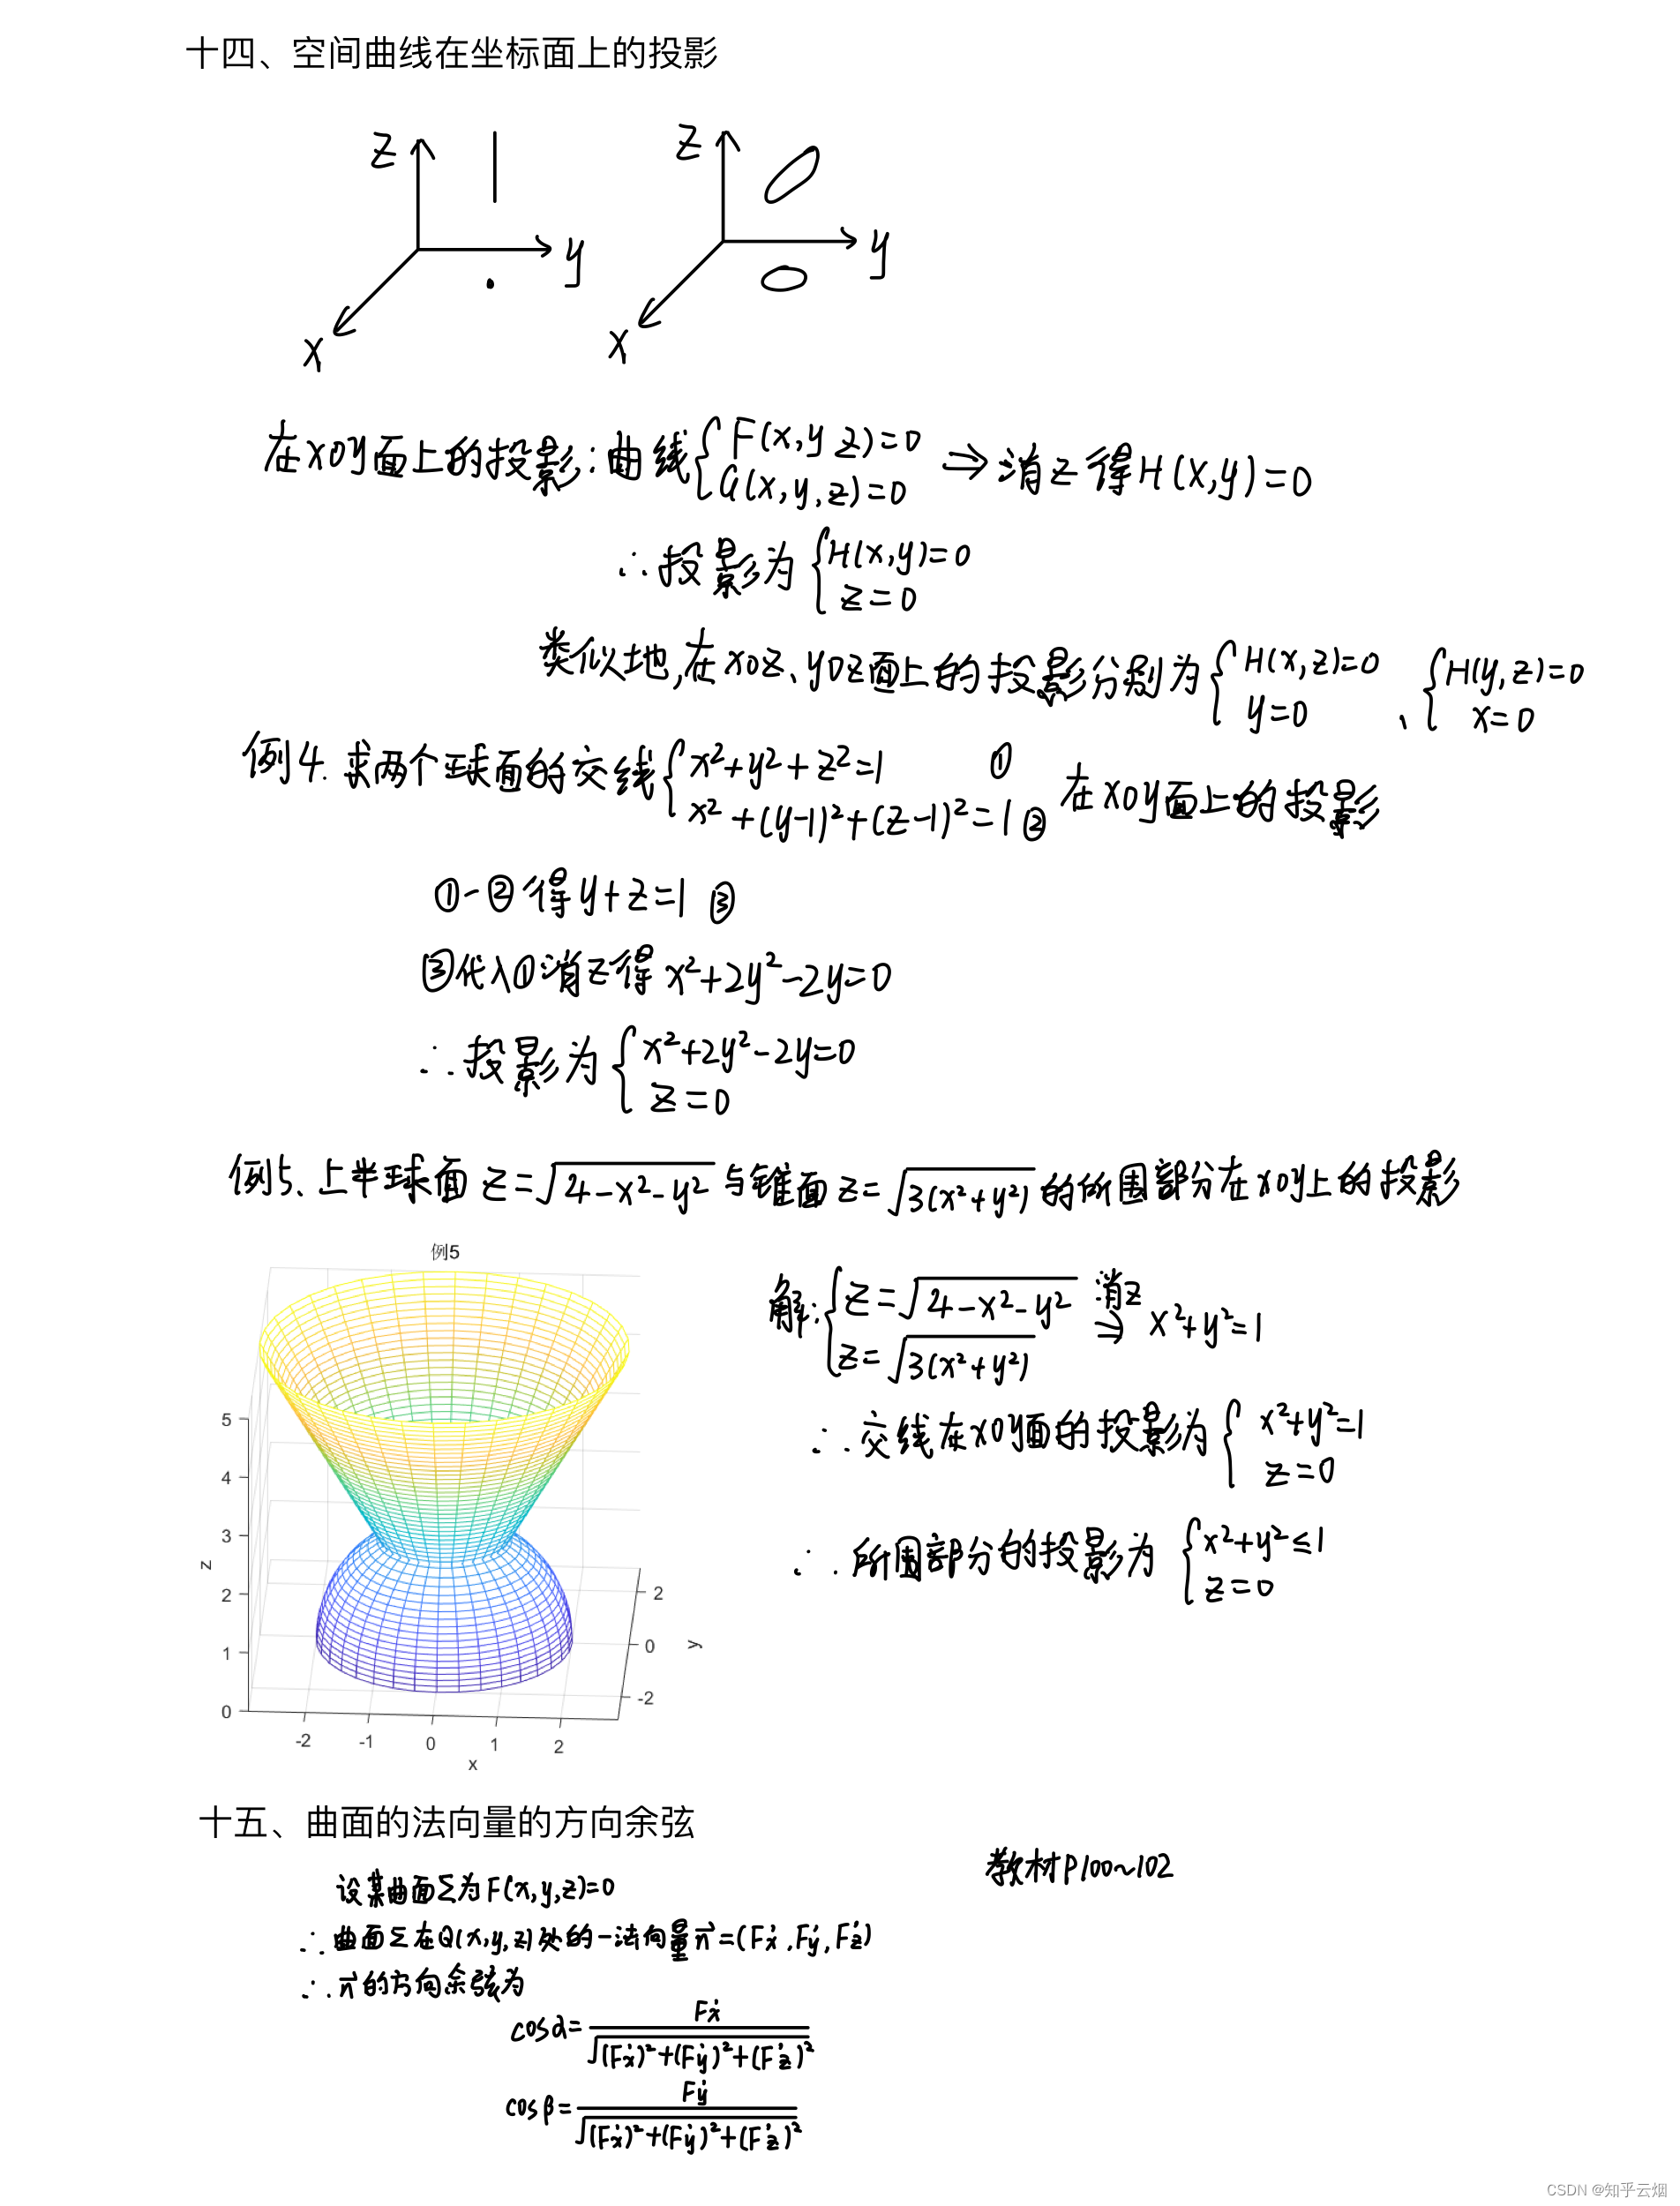 十四、空间曲线在坐标面上的投影
z
y
x
z
y
x
在xoy面上的投影:曲线{F(x,y z)=0 G(x,y,z)=0 ⇒消z得H(x,y)=0
∴投影为{H(x,y)=0 z=0
类似地,在xoz、yoz面上的投影分别为{H(x,z)=0 y=0、{H(y,z)=0 x=0
例4.求两个球面的交线{x²+y²+z²=1 ① x²+(y-1)²+(z-1)²=1② 在xoy面上的投影
①-②得y+z=1 ③
③代入①消z得x²+2y²-2y=0
∴投影为{x²+2y²-2y=0 z=0
例5、上半球面z=√(4-x²-y²)与锥面z=√(3(x²+y²))的所围部分在xoy上的投影
例5
5
4
3
2
1
0
z
-2
-1
0
1
2
x
2
0
-2
y
解:{z=√(4-x²-y²) z=√(3(x²+y²)) 消z⇒ x²+y²=1
∴交线在xoy面的投影为{x²+y²=1 z=0
∴所围部分的投影为{x²+y²≤1 z=0
十五、曲面的法向量的方向余弦
教材P100~102
设某曲面Σ为F(x,y,z)=0
∴曲面Σ在Q(x,y,z)处的一法向量n⃗=(Fx',Fy',Fz')
∴n⃗的方向余弦为
cosα=Fx'/√((Fx')²+(Fy')²+(Fz')²)
cosβ=Fy'/√((Fx')²+(Fy')²+(Fz')²)
CSDN @知乎云烟